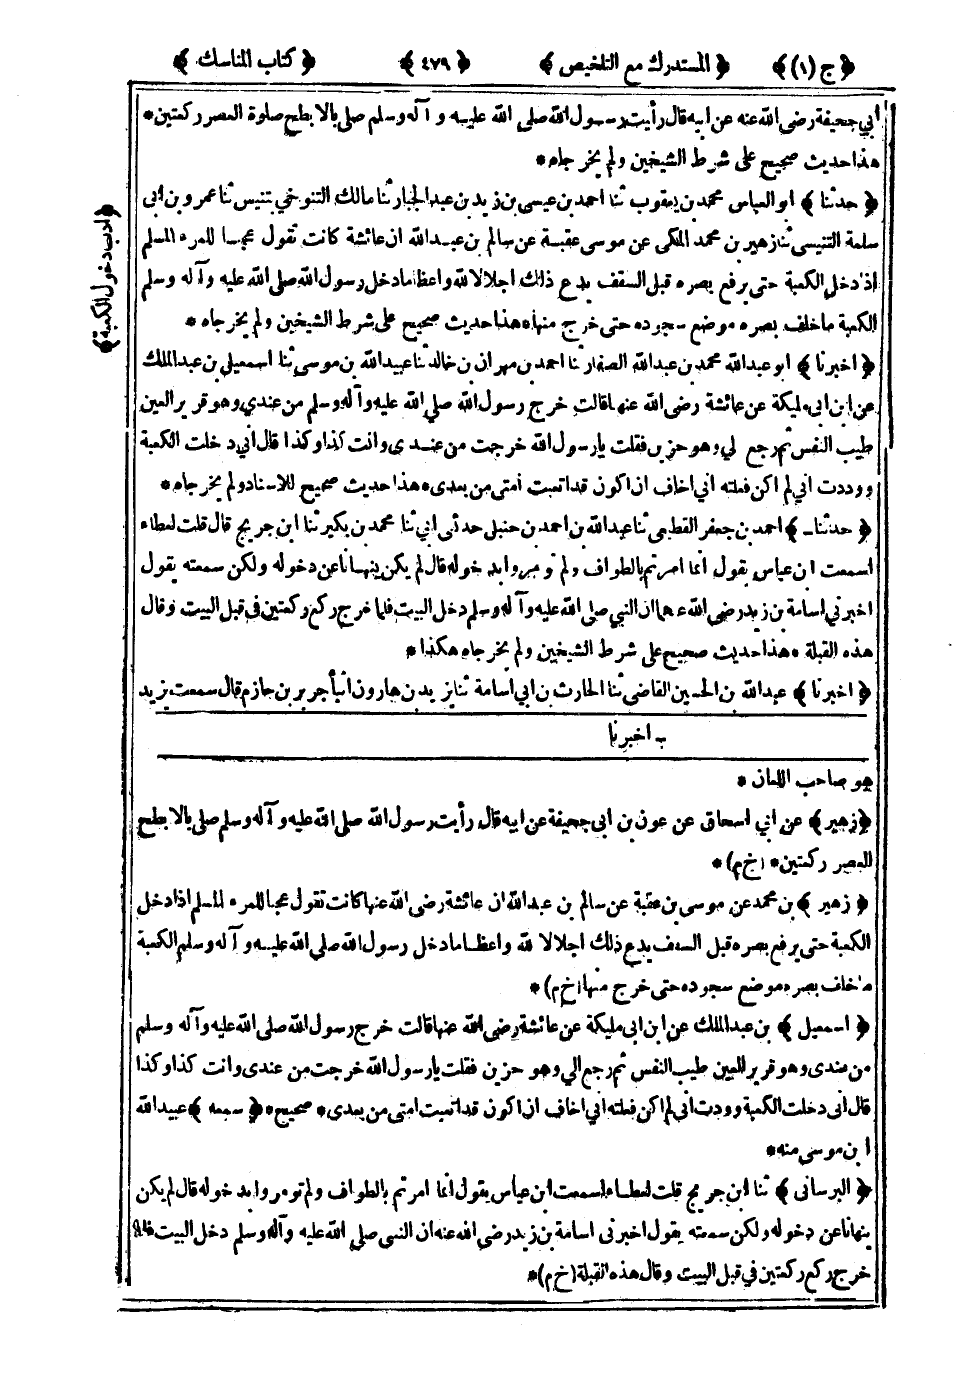 ﴿ ج (١) ﴾ ﴿ المستدرك مع التلخيص ﴾ ﴿ ٤٧٩ ﴾ ﴿ كتاب المناسك ﴾
ابي جحيفة رضى الله عنه عن ابيه قال رأيت رسول الله صلى الله عليه و آله وسلم صلى بالا بطح صلوة العصر ركعتين *
هذا حديث صحيح على شرط الشيخين ولم يخرجاه *
﴿ حدثنا ﴾ ابو العباس محمد بن يعقوب ثنا احمد بن عيسى بن زيد بن عبد الجبار ثنا مالك التنوخي بتنيس ثنا عمرو بن ابى
سلمة التنيسى ثنا زهير بن محمد المكى عن موسى عقبة عن سالم بن عبد الله ان عائشة كانت تقول عجبا للمرء المسلم
اذا دخل الكعبة حتى يرفع بصره قبل السقف يدع ذلك اجلالا لله واعظاما دخل رسول الله صلى الله عليه وآله وسلم
الكعبة ما خلف بصره موضع سجوده حتى خرج منها * هذا حديث صحيح على شرط الشيخين ولم يخرجاه *
﴿ اخبرنا ﴾ ابو عبد الله محمد بن عبد الله الصفار ثنا احمد بن مهران بن خالد ثنا عبيد الله بن موسى ثنا اسمعيل بن عبد الملك
عن ابن ابى مليكة عن عائشة رضى الله عنها قالت خرج رسول الله صلى الله عليه وآله وسلم من عندي وهو قرير العين
طيب النفس ثم رجع لي وهو حزين فقلت يا رسول الله خرجت من عندى وانت كذا وكذا قال اني دخلت الكعبة
ووددت اني لم اكن فعلته اني اخاف ان اكون قد اتعبت أمتى من بعدى * هذا حديث صحيح للاسناد ولم يخرجاه *
﴿ حدثنا ﴾ احمد بن جعفر القطيعى ثنا عبد الله بن احمد بن حنبل حدثى ابي ثنا محمد بن بكير ثنا ابن جريج قال قلت لعطاء
اسمعت ابن عباس يقول انما امرتم بالطواف ولم تؤمروا بدخوله قال لم يكن ينهانا عن دخوله ولكن سمعته يقول
اخبرني اسامة بن زيد رضى الله عنهما ان النبي صلى الله عليه وآله وسلم دخل البيت فلما خرج ركع ركعتين في قبل البيت وقال
هذه القبلة * هذا حديث صحيح على شرط الشيخين ولم يخرجاه هكذا *
﴿ اخبرنا ﴾ عبد الله بن الحسين القاضي ثنا الحارث بن ابي اسامة ثنا يزيد بن هارون انبأ جرير بن حازم قال سمعت يزيد
﴿ ادب دخول الكعبة ﴾
ب اخبرنا
هو صاحب اللعان *
﴿ زهير ﴾ عن ابي اسحاق عن عون بن ابى جحيفة عن ابيه قال رأيت رسول الله صلى الله عليه وآله وسلم صلى بالا بطح
العصر ركعتين * (خ م) *
﴿ زهير ﴾ بن محمد عن موسى بن عقبة عن سالم بن عبد الله ان عائشة رضى الله عنها كانت تقول عجبا للمرء المسلم اذا دخل
الكعبة حتى يرفع بصره قبل السقف يدع ذلك اجلالا لله واعظاما دخل رسول الله صلى الله عليه و آله وسلم الكعبة
ما خلف بصره موضع سجوده حتى خرج منها (خ م) *
﴿ اسمعيل ﴾ بن عبد الملك عن ابن ابى مليكة عن عائشة رضى الله عنها قالت خرج رسول الله صلى الله عليه وآله وسلم
من عندى وهو قرير العين طيب النفس ثم رجع الي وهو حزين فقلت يا رسول الله خرجت من عندى وانت كذا وكذا
قال انى دخلت الكعبة ووددت انى لم اكن فعلته اني اخاف ان اكون قد اتعبت امتى من بعدى * صحيح * ﴿ سمعه ﴾ عبيد الله
ابن موسى منه *
﴿ البرسانى ﴾ ثنا ابن جريج قلت لعطاء اسمعت ابن عباس يقول انما امرتم بالطواف ولم تومروا بدخوله قال لم يكن
ينهانا عن دخوله ولكن سمعته يقول اخبرنى اسامة بن زيد رضى الله عنه ان النبى صلى الله عليه وآله وسلم دخل البيت فلما
خرج ركع ركعتين في قبل البيت وقال هذه القبلة (خ م) *